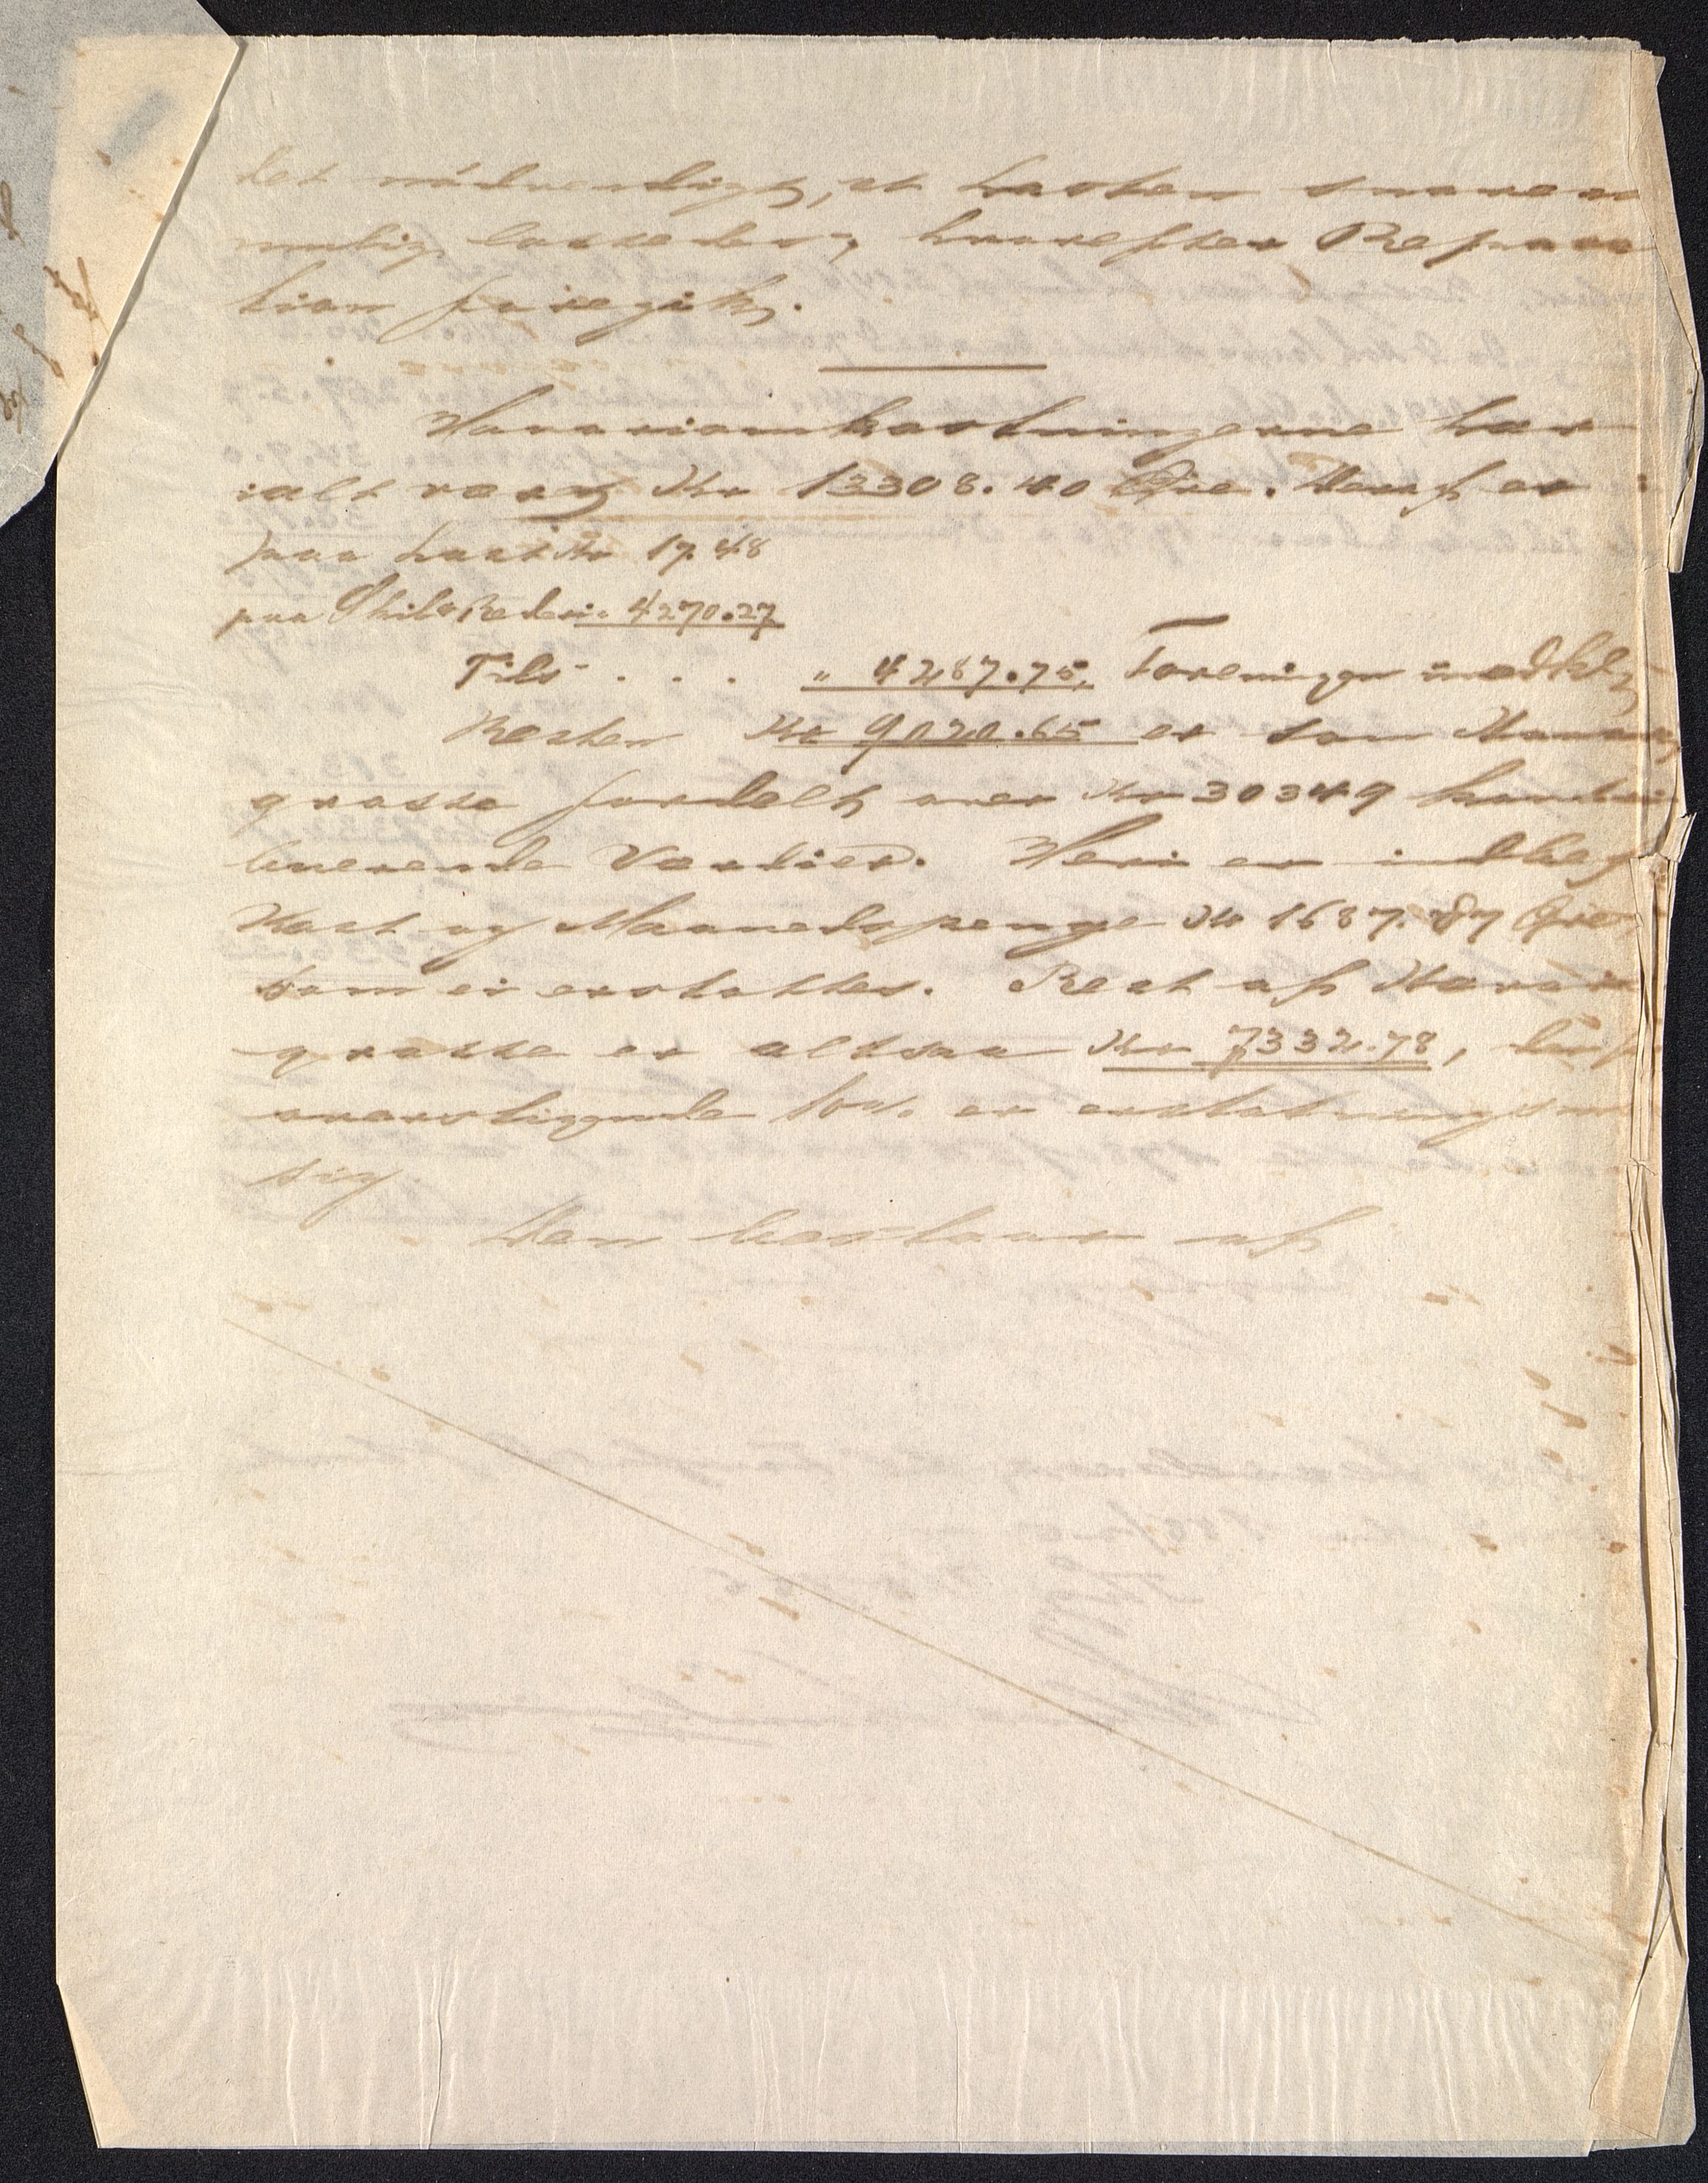 det nödvendigt, at lasten snarest
mulig lossedes, hvorefter Repara
tion foregik.
Havariomkostningerne har
ialt været Kr 13308.40 Øre. Heraf er
paa Last Kr 17.48
paa Skib & Rederi " 4270.27
Tils. . . . " 4287.75, Foreningen uvedk
Resten Kr 9020.65 er som Havari
grosse fordelt over Kr 30349 kontri
buerende Værdier. Heri er indbeg
Kost og Maanedspenge Kr 1687.87 Øre
som ei erstattes. Rest af Havari
grosse er altsaa Kr 7332.78, der
overstigende 10% er erstatningsm
sig
Den bestaar af